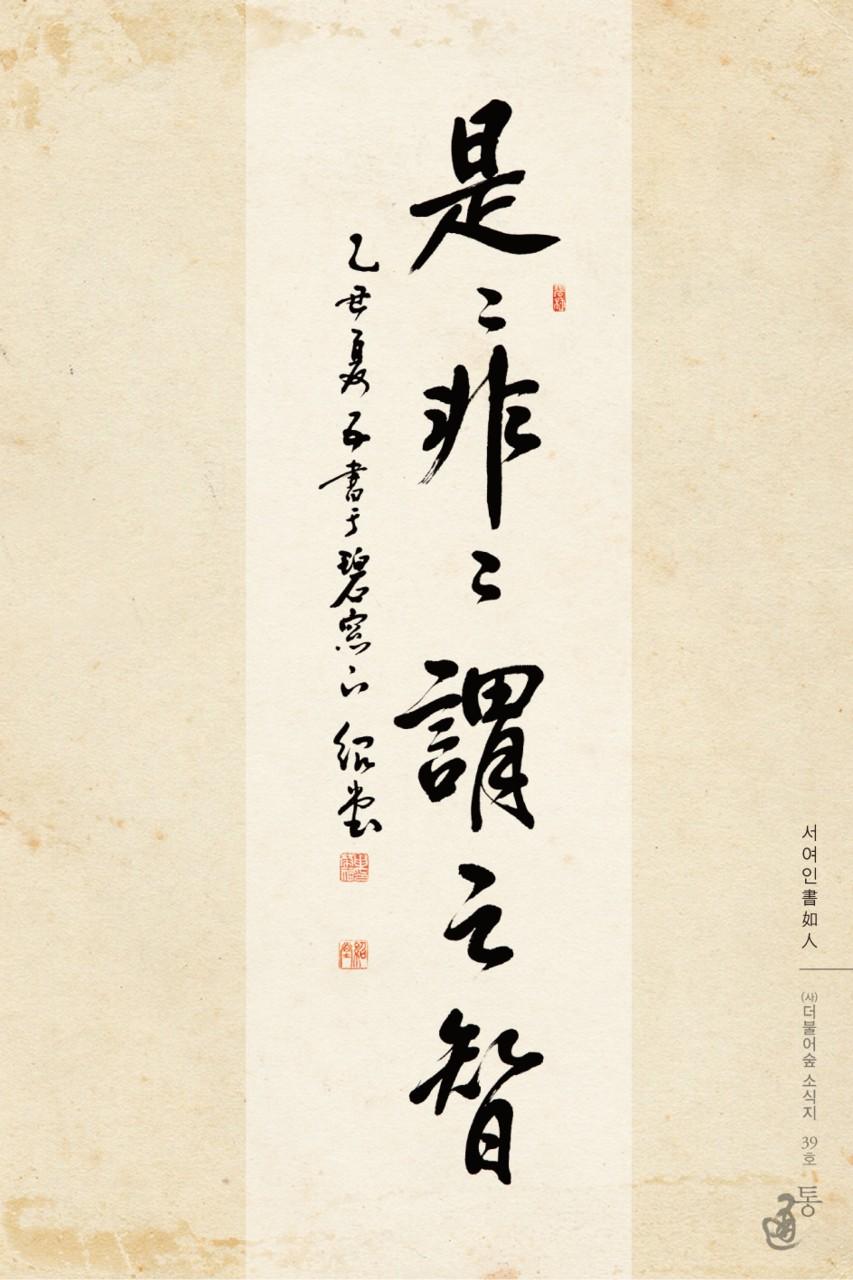 是〻非〻謂之智
乙丑夏 書于碧窓下 紹堂
서여인書如人
(사)더불어숲 소식지 39호
통
通